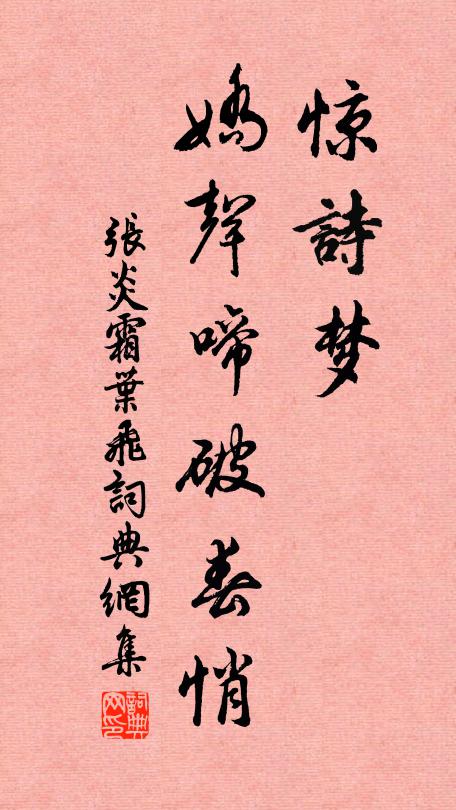 惊詩梦
嬌聲啼破春悄
張炎霜葉飛詞典網集
詞典网印